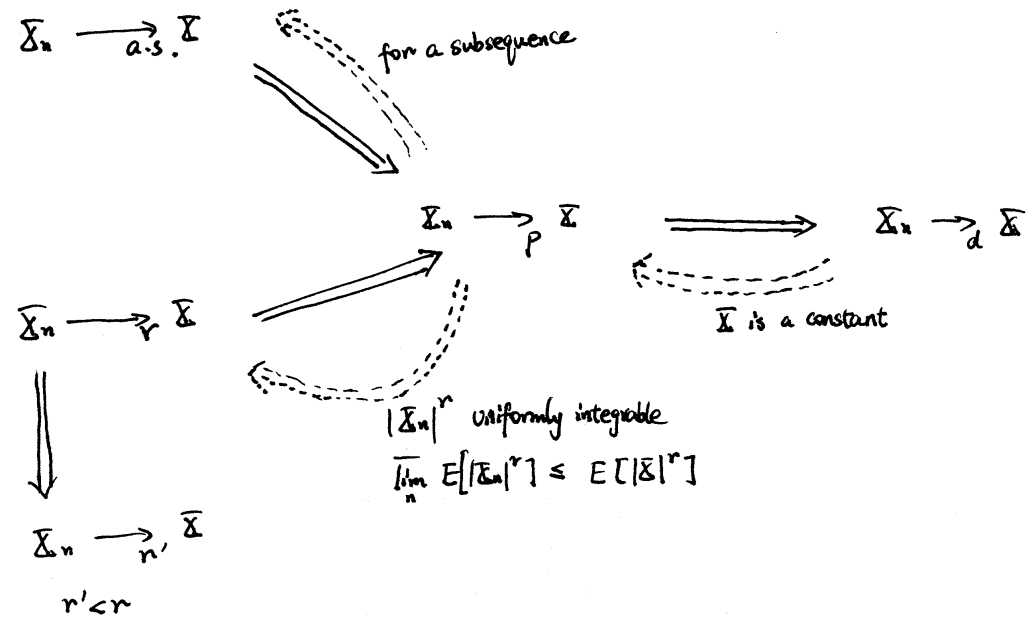 X̄ₙ ⟶ a.s. X̄
for a subsequence
X̄ₙ ⟶ p X̄
X̄ₙ ⟶ d X̄
X̄ₙ ⟶ r X̄
X̄ is a constant
|X̄ₙ|ʳ uniformly integrable
lim̅ n E[|X̄ₙ|ʳ] ≤ E[|X̄|ʳ]
X̄ₙ ⟶ r' X̄
r' < r